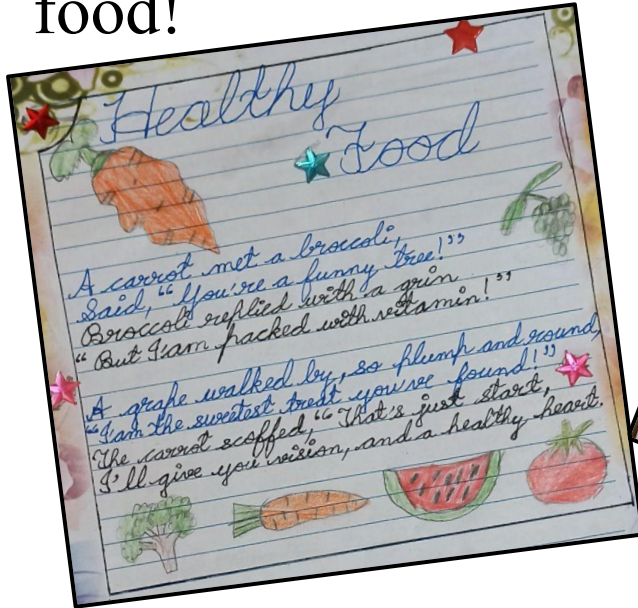 food!
Healthy
Food
A carrot met a broccoli,
Said, “You're a funny tree!”
Broccoli replied with a grin
“But I'am packed with vitamin!”
A grape walked by, so plump and round,
“I'am the sweetest treat you've found!”
The carrot scoffed, “That's just start,
I'll give you vision, and a healthy heart.